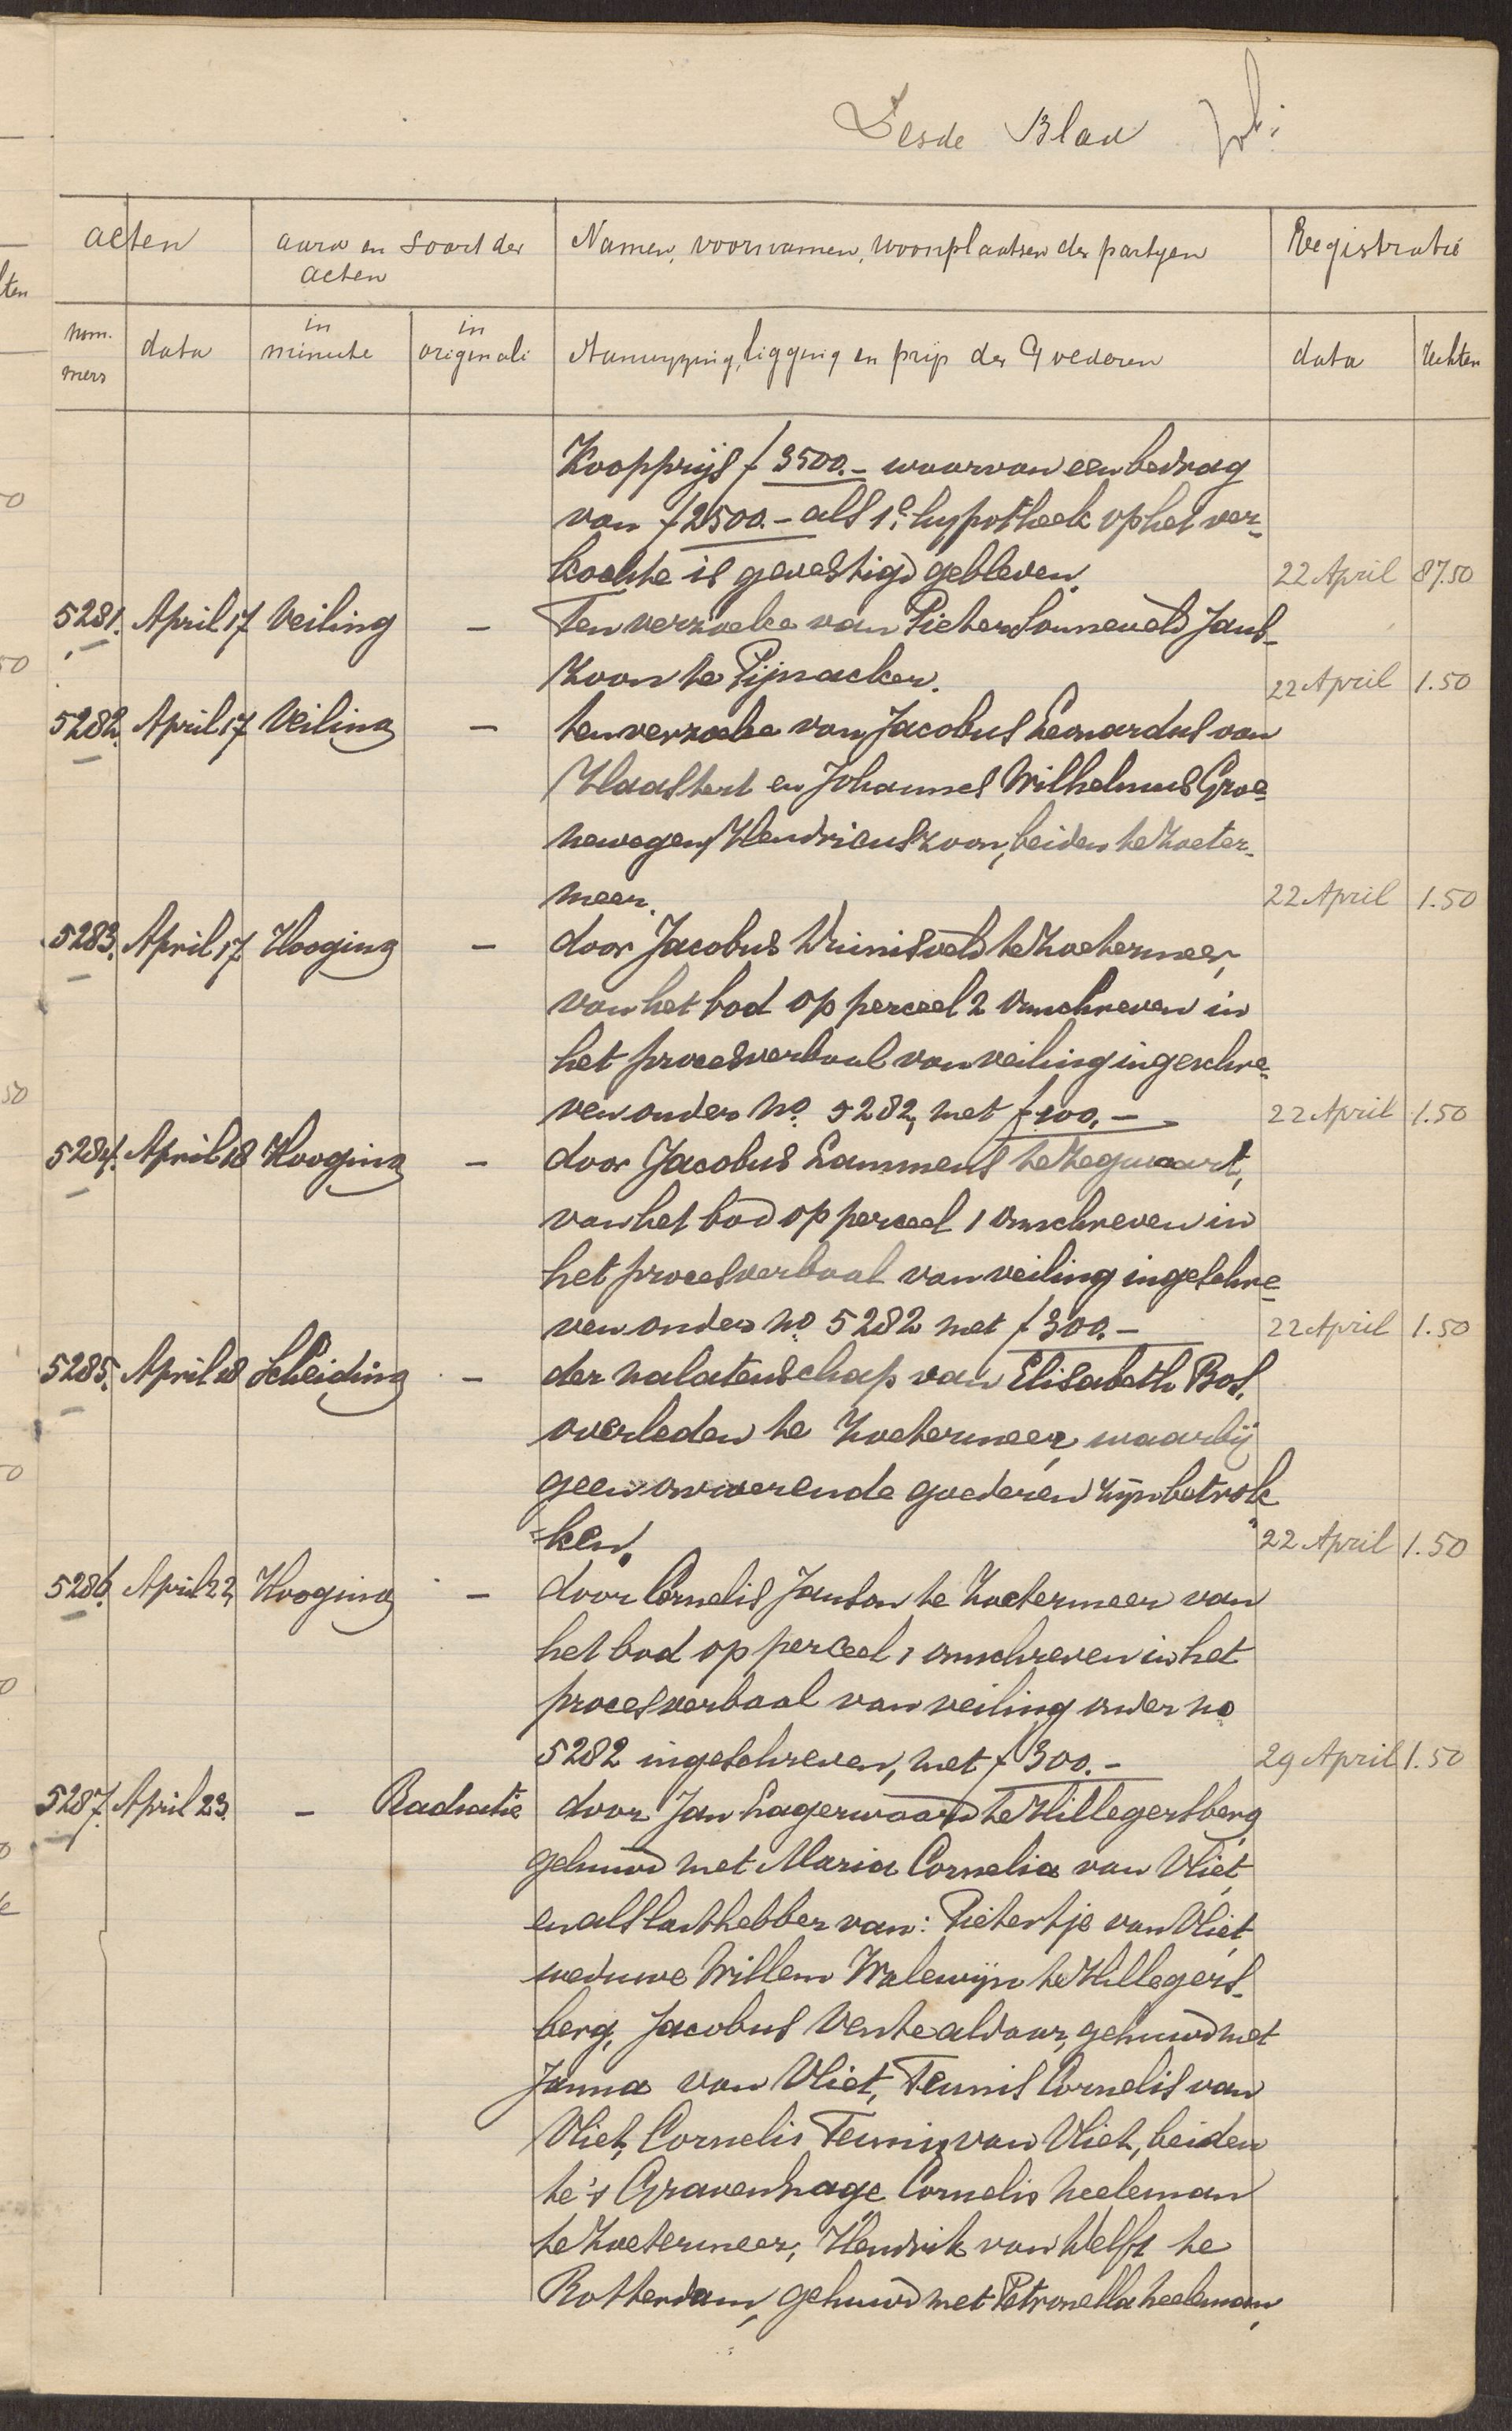 Sesde Blad
acten aard en Soort der Namen, voornamen, woonplaatsen der partyen Registratie
acten
nom- data in in Aanwyzing, ligging en prijs der Goederen data rechten
mers minute originali
Koopprijs f 3500.- waarvan een bedrag
van f 2500.- als 1e hypotheek op het ver-
kochte is gevestigd gebleven. 22 April 87.50
5281. April 17 Veiling - Ten verzoeke van Pieter Sonneveld Jans-
zoon te Pijnacker. 22 April 1.50
5282. April 17 Veiling - ten verzoeke van Jacobus Leonardus van
Haastert en Johannes Wilhelmus Groe-
newegen Hendricuszoon, beiden te Zoeter-
meer. 22 April 1.50
5283. April 17 Hooging - door Jacobus Duinisveld te Zoetermeer,
van het bod op perceel 2 omschreven in
het procesverbaal van veiling ingeschre-
ven onder No. 5282, met f 100.- 22 April 1.50
5284. April 18 Hooging - door Jacobus Lammens te Zegwaart,
van het bod op perceel 1 omschreven in
het procesverbaal van veiling ingeschre-
ven onder No. 5282 met f 300.- 22 April 1.50
5285. April 18 Scheiding - der nalatenschap van Elisabeth Bos,
overleden te Zoetermeer, waarbij
geen onroerende goederen zijn betrok
-ken. 22 April 1.50
5286. April 22 Hooging - door Cornelis Janson te Zoetermeer van
het bod op perceel 1 omschreven in het
procesverbaal van veiling onder no
5282 ingeschreven, met f 300.- 29 April 1.50
5287. April 23. - Radiatie door Jan Lagerwaard te Hillegersberg
gehuwd met Maria Cornelia van Vliet,
en als lasthebber van: Pietertje van Vliet,
weduwe Willem Walewijn te Hillegers-
berg, Jacobus Vente aldaar, gehuwd met
Janna van Vliet, Teunis Cornelis van
Vliet, Cornelis Teunis van Vliet, beiden
te 's Gravenhage Cornelis Neeleman
te Zoetermeer, Hendrik van Delft te
Rotterdam, gehuwd met Petronella Neeleman,